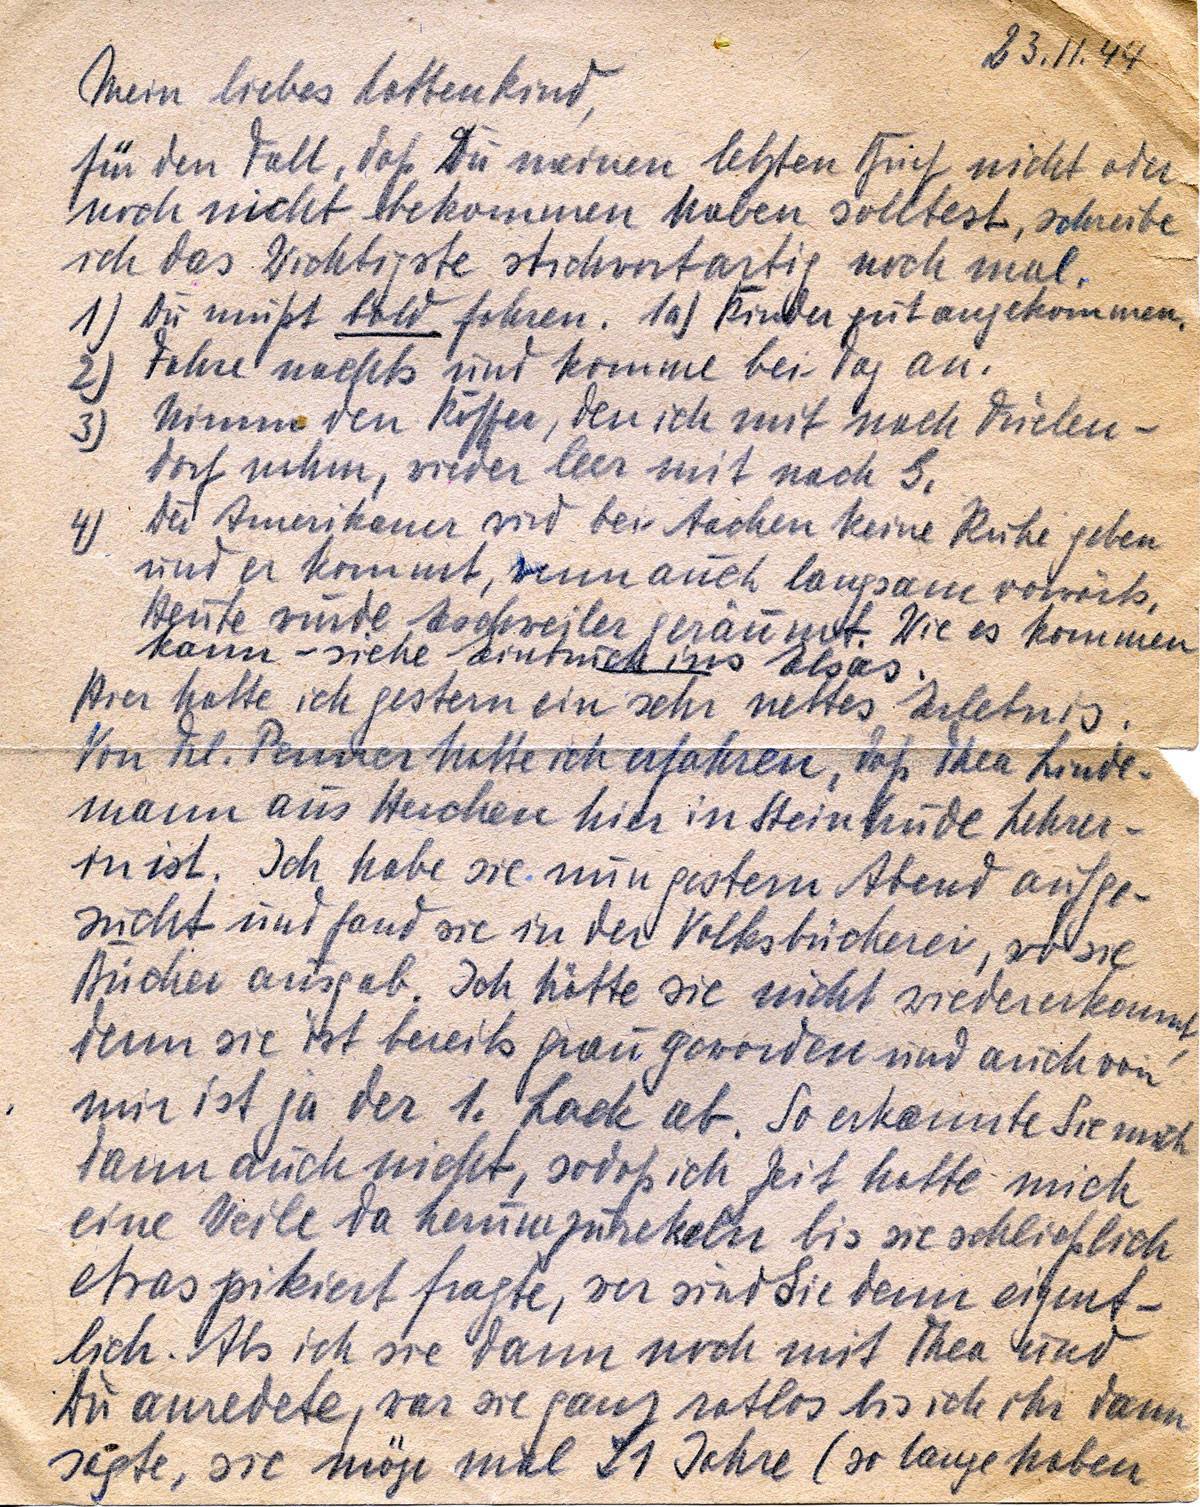 23.11.44
Mein liebes Lottenkind,
für den Fall, daß Du meinen letzten Brief nicht oder
noch nicht bekommen haben solltest, schreibe
ich das Wichtigste stichwortartig noch mal.
1) Du mußt bald fahren. 1a) Kinder gut angekommen.
2) Fahre nachts und komme bei Tag an.
3) Nimm den Koffer, den ich mit nach
dorf nehm, wieder leer mit nach G.
4) Der Amerikaner wird bei Aachen keine Ruhe geben
und er kommt, wenn auch langsam vorwärts.
Heute wurde Eschweiler geräumt. Wie es kommen
kann – siehe Einbruch ins Elsas.
Hier hatte ich gestern ein sehr nettes Erlebnis.
Von Frl. Penner hatte ich erfahren, daß Thea Linde-
mann aus Herchen hier in Steinhude Lehrer-
in ist. Ich habe sie nun gestern Abend aufge-
sucht und fand sie in der Volksbücherei, wo sie
Bücher ausgab. Ich hätte sie nicht wiedererkannt,
denn sie ist bereits grau geworden und auch von
mir ist ja der 1. Lack ab. So erkannte Sie mich
dann auch nicht, sodaß ich Zeit hatte mich
eine Weile da herumzurekeln bis sie schließlich
etwas pikiert fragte, wer sind Sie denn eigent-
lich. Als ich sie dann noch mit Thea und
Du anredete, war sie ganz ratlos bis ich ihr dann
sagte, sie möge mal 21 Jahre (so lange haben